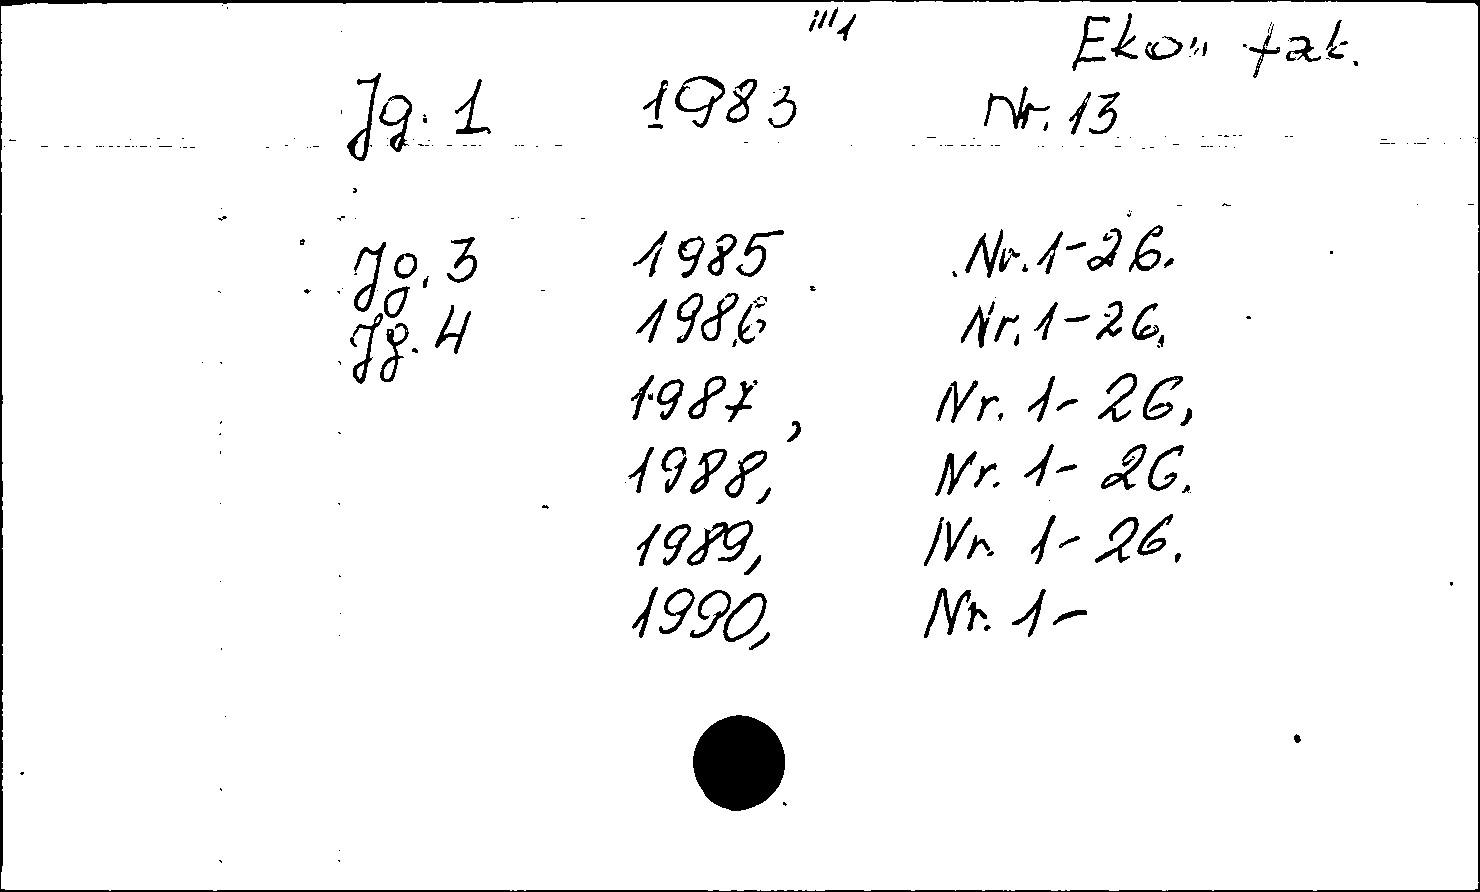 Ekon fak.
Jg. 1 1983 Nr. 13
Jg. 3 1985 Nr. 1-26.
Jg. 4 1986 Nr. 1-26.
1987, Nr. 1- 26,
1988, Nr. 1- 26.
1989, Nr. 1- 26.
1990, Nr. 1-